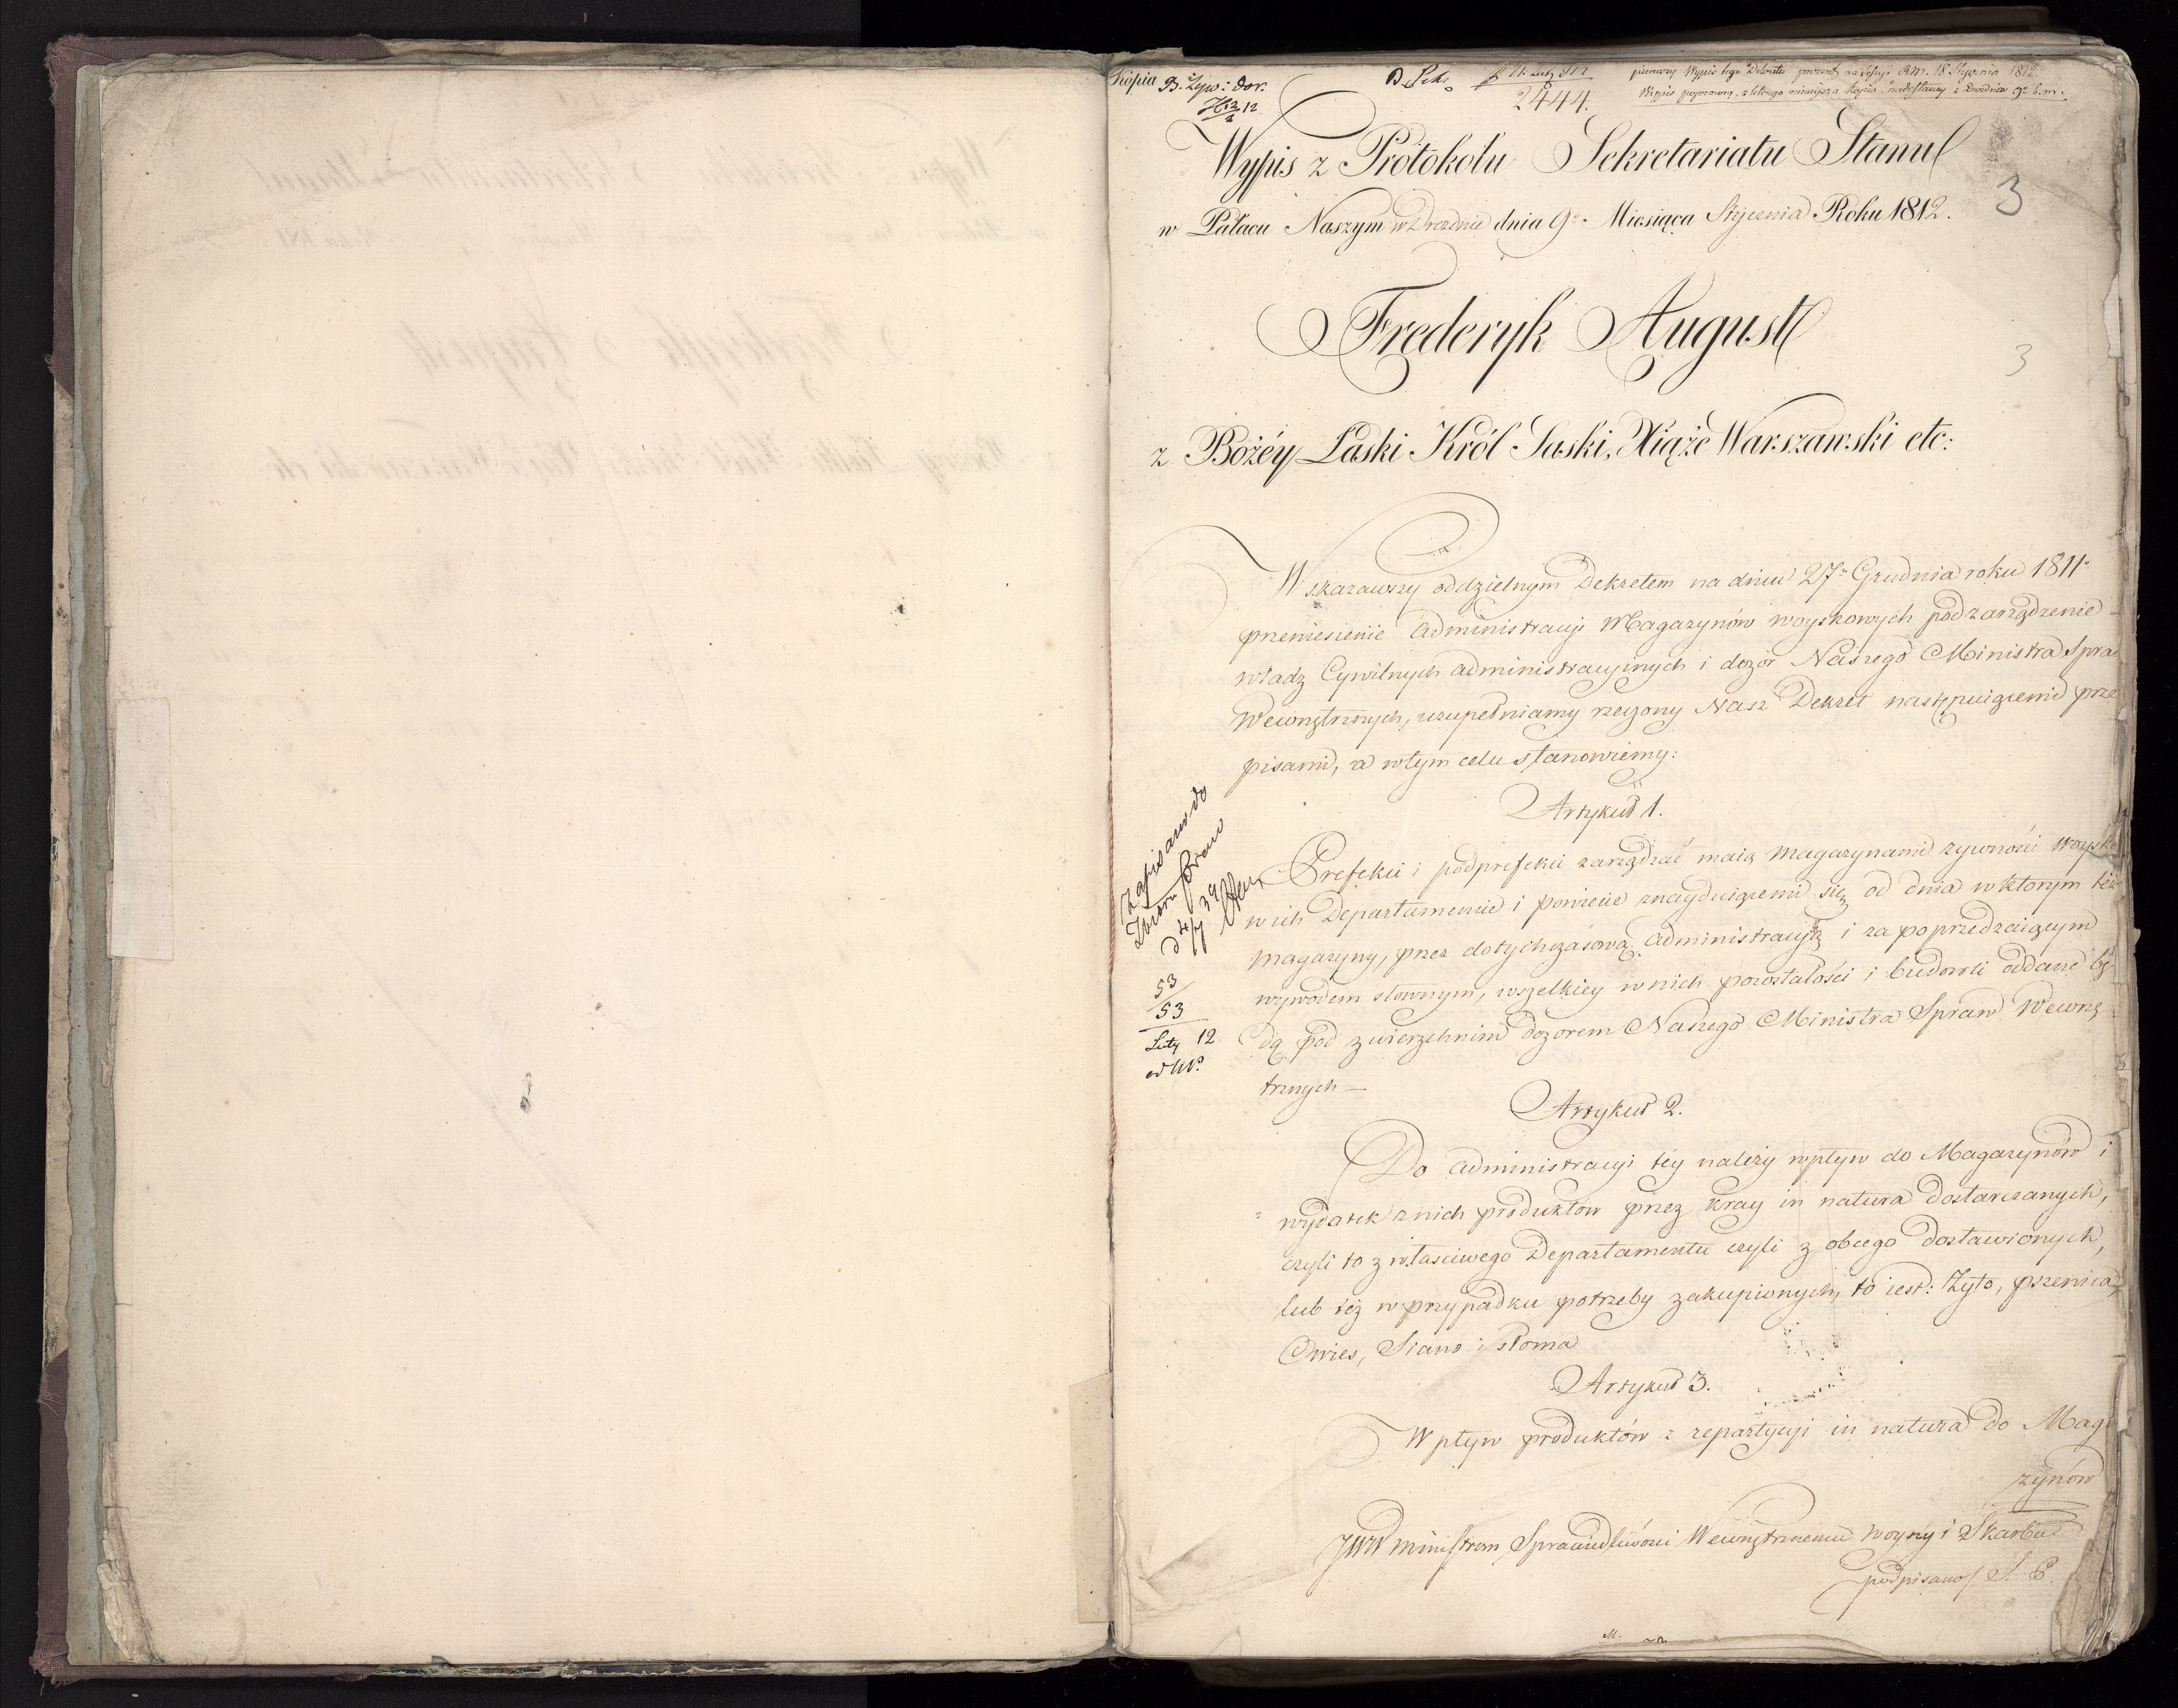 Kopia B. Żyw: dor.
2444.
pierwszy Wypis tego Dekretu
Wypis z Protokołu Sekretariatu Stanu
3
w Pałacu Naszym w Dreznie dnia 9º Miesiąca Stycznia Roku 1812.
Frederyk August
3
z Bożéy Łaski Król Saski, Xiąże Warszawski etc:
Wskazawszy oddzielnym Dekretem na dniu 27º Grudnia roku 1811º
przeniesienie administracyi Magazynów woyskowych pod zarządzenie
władz Cywilnych administracyinych i dozór Naszego Ministra Spraw
Wewnętrznych, uzupełniamy rzeczony Nasz Dekret następuiącemi prze
pisami, a w tym celu stanowiemy:
Artykuł 1.
Prefekci i podprefekci zarządzać maią magazynami zywności woysko
w ich Departamencie i powiecie znayduiącemi się, od dnia w którym też
magazyny, przez dotychczasową administracyą i za poprzedzaiącym
wywodem słownym, wszelkiey w nich pozostałości i budowli oddane bę
dą pod zwierzchnim dozorem Naszego Ministra Spraw Wewnę
trznych —
Zapisano do
Zbioru Praw
53
53
Luty 12
Artykuł 2.
Do administracyi téy należy wpływ do Magazynów i
wydatek z nich produktów przez kray in natura dostarczanych,
czyli to z właściwego Departamentu czyli z obcego dostawionych,
lub też w przypadku potrzeby zakupionych, to iest: Zyto, pszenica,
Owies, Siano i słoma
Artykuł 3.
Wpływ produktów z repartycyi in natura do Maga
zynów
JWW Ministrom Sprawiedliwości Wewnętrznemu woyny i Skarbu
podpisano/ S. B.